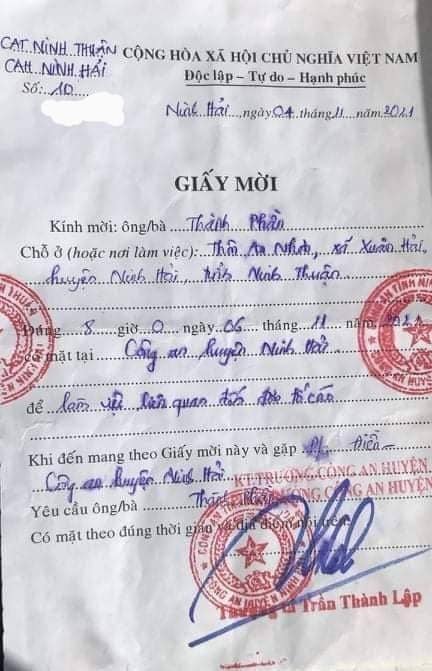 CAT. NINH THUẬN
CỘNG HÒA XÃ HỘI CHỦ NGHĨA VIỆT NAM
CAH. NINH HẢI
Độc lập – Tự do – Hạnh phúc
Số: 10
Ninh Hải, ngày 04 tháng 11 năm 2021
GIẤY MỜI
Kính mời: ông/bà Thành Phần
Chỗ ở (hoặc nơi làm việc): Thôn An Nhơn, xã Xuân Hải,
huyện Ninh Hải, tỉnh Ninh Thuận
Đúng 8 giờ 0 ngày 06 tháng 11 năm 2021
có mặt tại Công an huyện Ninh Hải
để làm việc liên quan đến đơn tố cáo
Khi đến mang theo Giấy mời này và gặp Điền
Công an huyện Ninh Hải
KT.TRƯỞNG CÔNG AN HUYỆN
Yêu cầu ông/bà Thành Phần
CÔNG AN HUYỆN
Có mặt theo đúng thời gian và địa điểm nói trên
Trần Thành Lập